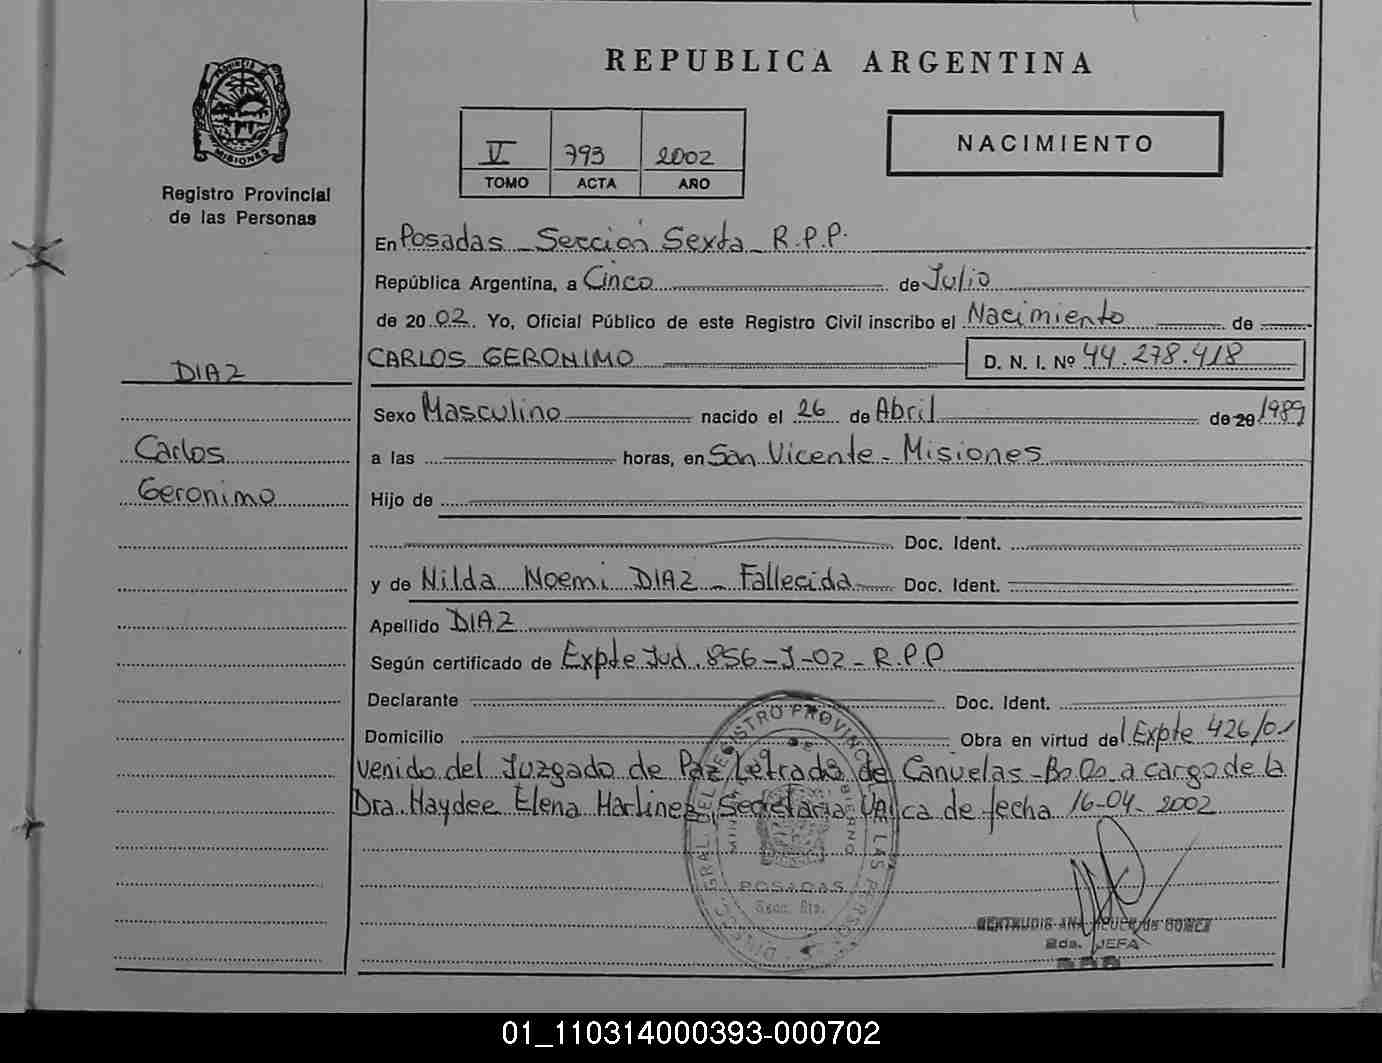 REPUBLICA ARGENTINA
PROVINCIA
MISIONES
Registro Provincial
de las Personas
V 793 2002
TOMO ACTA AÑO
NACIMIENTO
En Posadas - Sección Sexta - R.P.P.
República Argentina, a Cinco de Julio
de 20 02. Yo, Oficial Público de este Registro Civil inscribo el Nacimiento de
DIAZ
CARLOS GERONIMO D. N. I. Nº 44.278.418
Sexo Masculino nacido el 26 de Abril de 20 1989
Carlos
a las horas, en San Vicente - Misiones
Geronimo
Hijo de
Doc. Ident.
y de Nilda Noemi DIAZ - Fallecida Doc. Ident.
Apellido DIAZ
Según certificado de Expte Jud. 856-J-02-R.P.P
Declarante Doc. Ident.
Domicilio Obra en virtud del Expte 426/01
venido del Juzgado de Paz Letrado de Cañuelas - Bs As a cargo de la
Dra. Haydee Elena Martinez, Secretaria Unica de fecha 16-04-2002
POSADAS
Secc. 6ta.
GERTRUDIS ANA de GOMEZ
2da. JEFA
01_110314000393-000702